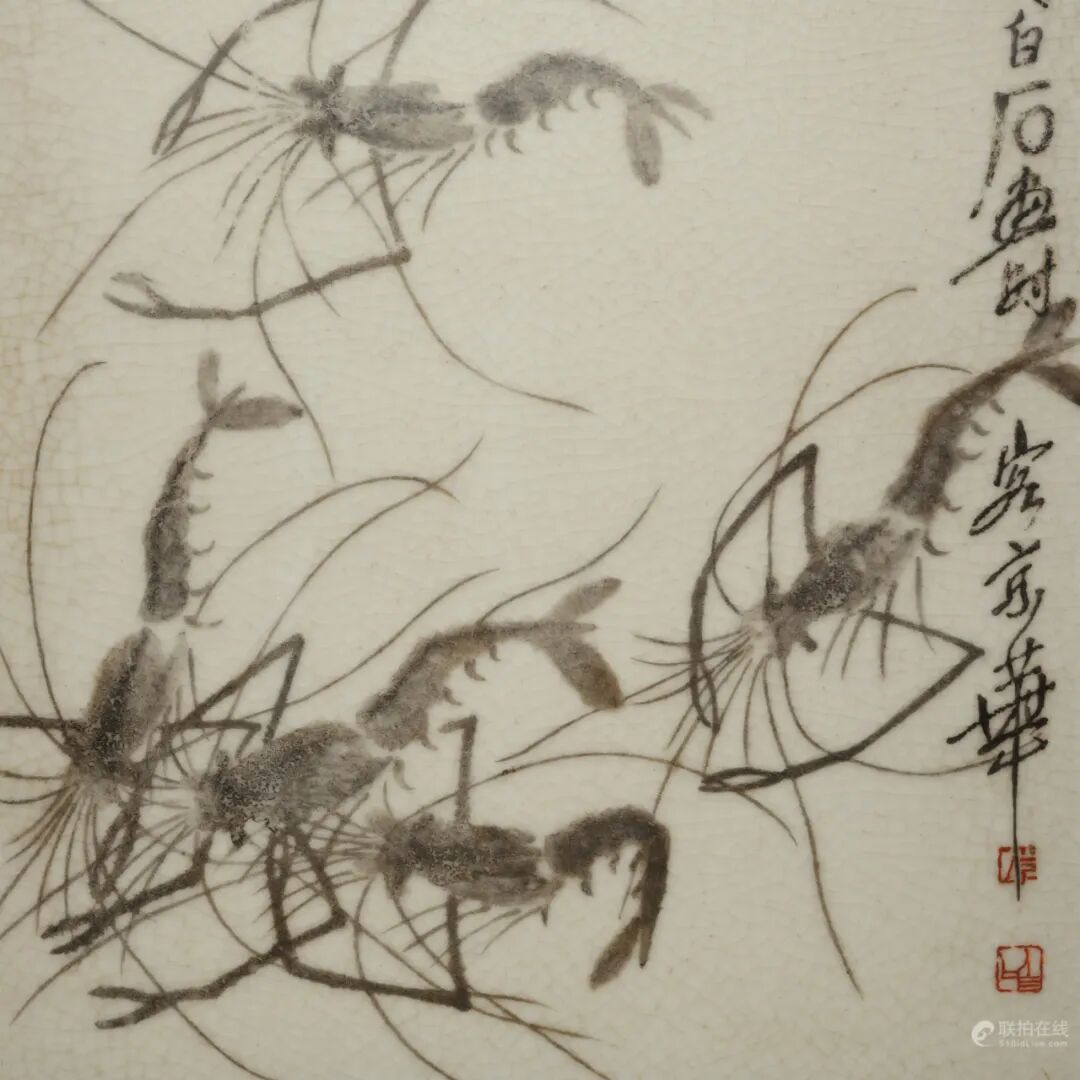 白石画时
客京華
联拍在线
518idLive.com